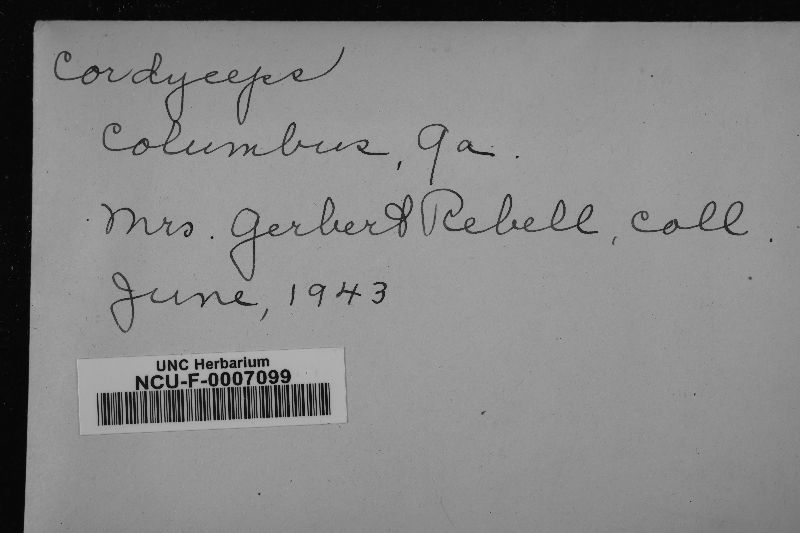 Cordyceps
Columbus, Ga.
Mrs. Gerbert Rebell, coll.
June, 1943
UNC Herbarium
NCU-F-0007099